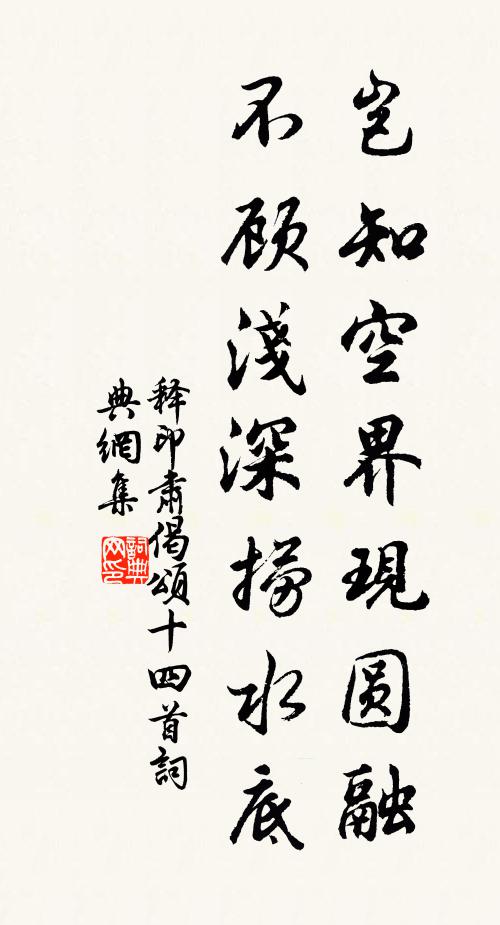 岂知空界現圆融
不顾淺深撈水底
释印肃偈頌十四首詞
典網集
詞典
网印